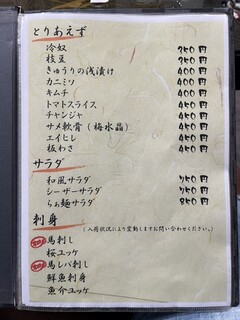 とりあえず
冷奴 350円
枝豆 350円
きゅうりの浅漬け 400円
カニミソ 400円
キムチ 400円
トマトスライス 450円
チャンジャ 450円
サメ軟骨（梅水晶） 450円
エイヒレ 450円
板わさ 450円
サラダ
和風サラダ 750円
シーザーサラダ 750円
らぁ麺サラダ 850円
刺身
（入荷状況により変動しますお問い合わせください。）
馬刺し
桜ユッケ
馬レバ刺し
鮮魚刺身
魚介ユッケ